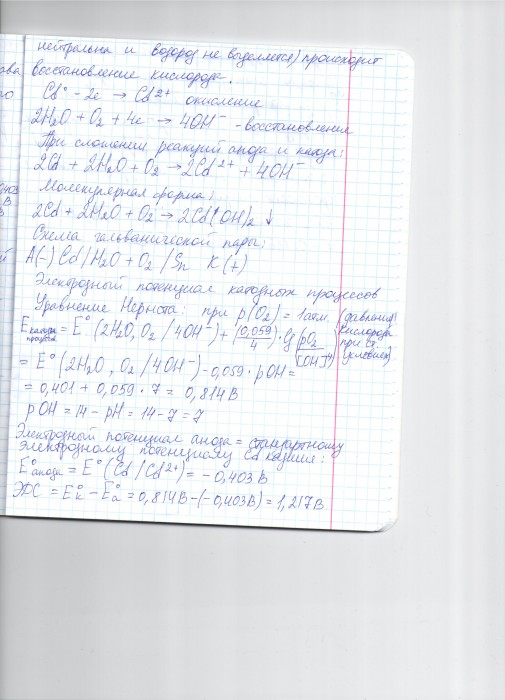 нейтральна и водород не выделяется) происходит
восстановление кислорода.
Cd° - 2e → Cd²⁺ окисление
2H₂O + O₂ + 4e → 4OH⁻ - восстановление
При сложении реакций анода и катода:
2Cd + 2H₂O + O₂ → 2Cd²⁺ + 4OH⁻
Молекулярная форма:
2Cd + 2H₂O + O₂ → 2Cd(OH)₂ ↓
Схема гальванической пары:
A(-) Cd / H₂O + O₂ / Sn K (+)
Электродный потенциал катодных процессов
Уравнение Нернста: при p(O₂) = 1 атм. (давление
кислорода
при ст.
условиях)
E катодн. процесса = E° (2H₂O, O₂ / 4OH⁻) + (0,059/4) · lg (pO₂/[OH⁻]⁴)
= E° (2H₂O, O₂ / 4OH⁻) - 0,059 · pOH =
= 0,401 + 0,059 · 7 = 0,814 В
pOH = 14 - pH = 14 - 7 = 7
Электродный потенциал анода = стандартному
электродному потенциалу Cd кадмия:
E° анода = E° (Cd / Cd²⁺) = - 0,403 В
ЭДС = E°к - E°а = 0,814В - (-0,403В) = 1,217В